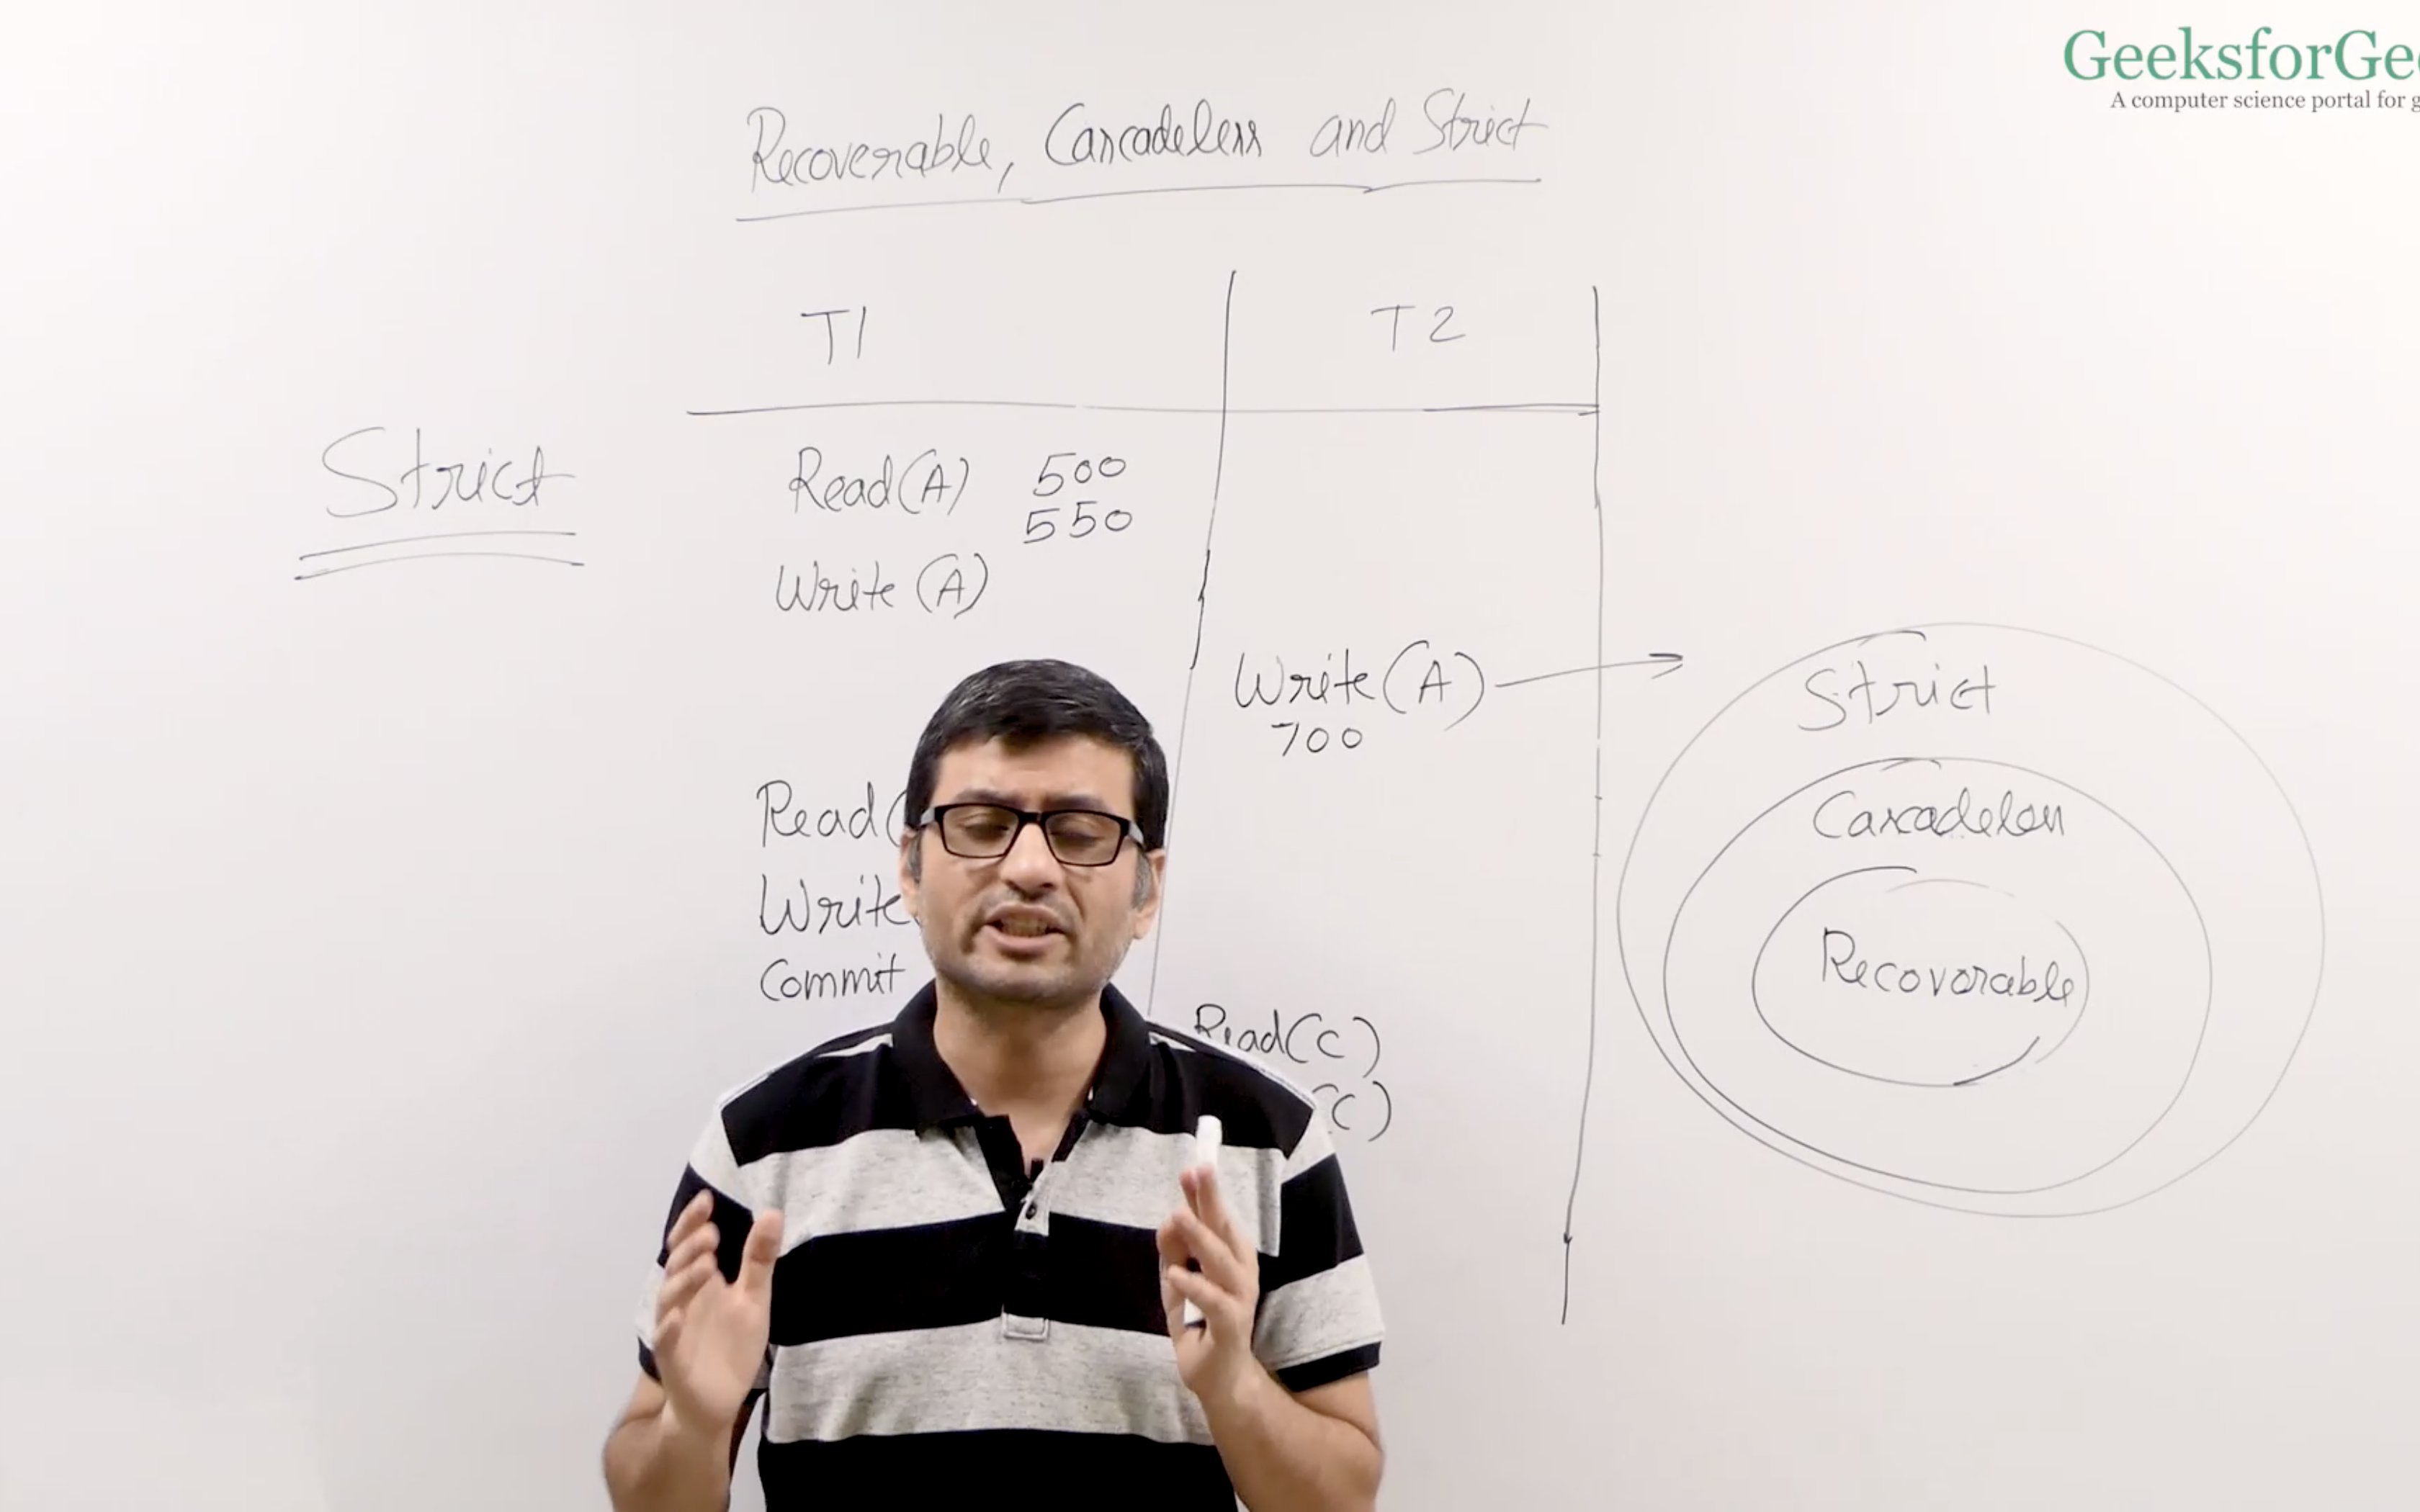 GeeksforGe
A computer science portal for g
Recoverable, Cascadeless and Strict
T1
T2
Strict
Read(A) 500
550
Write (A)
Write(A)
700
Read(
Write
Commit
Read(C)
(C)
Strict
Cascadeless
Recoverable